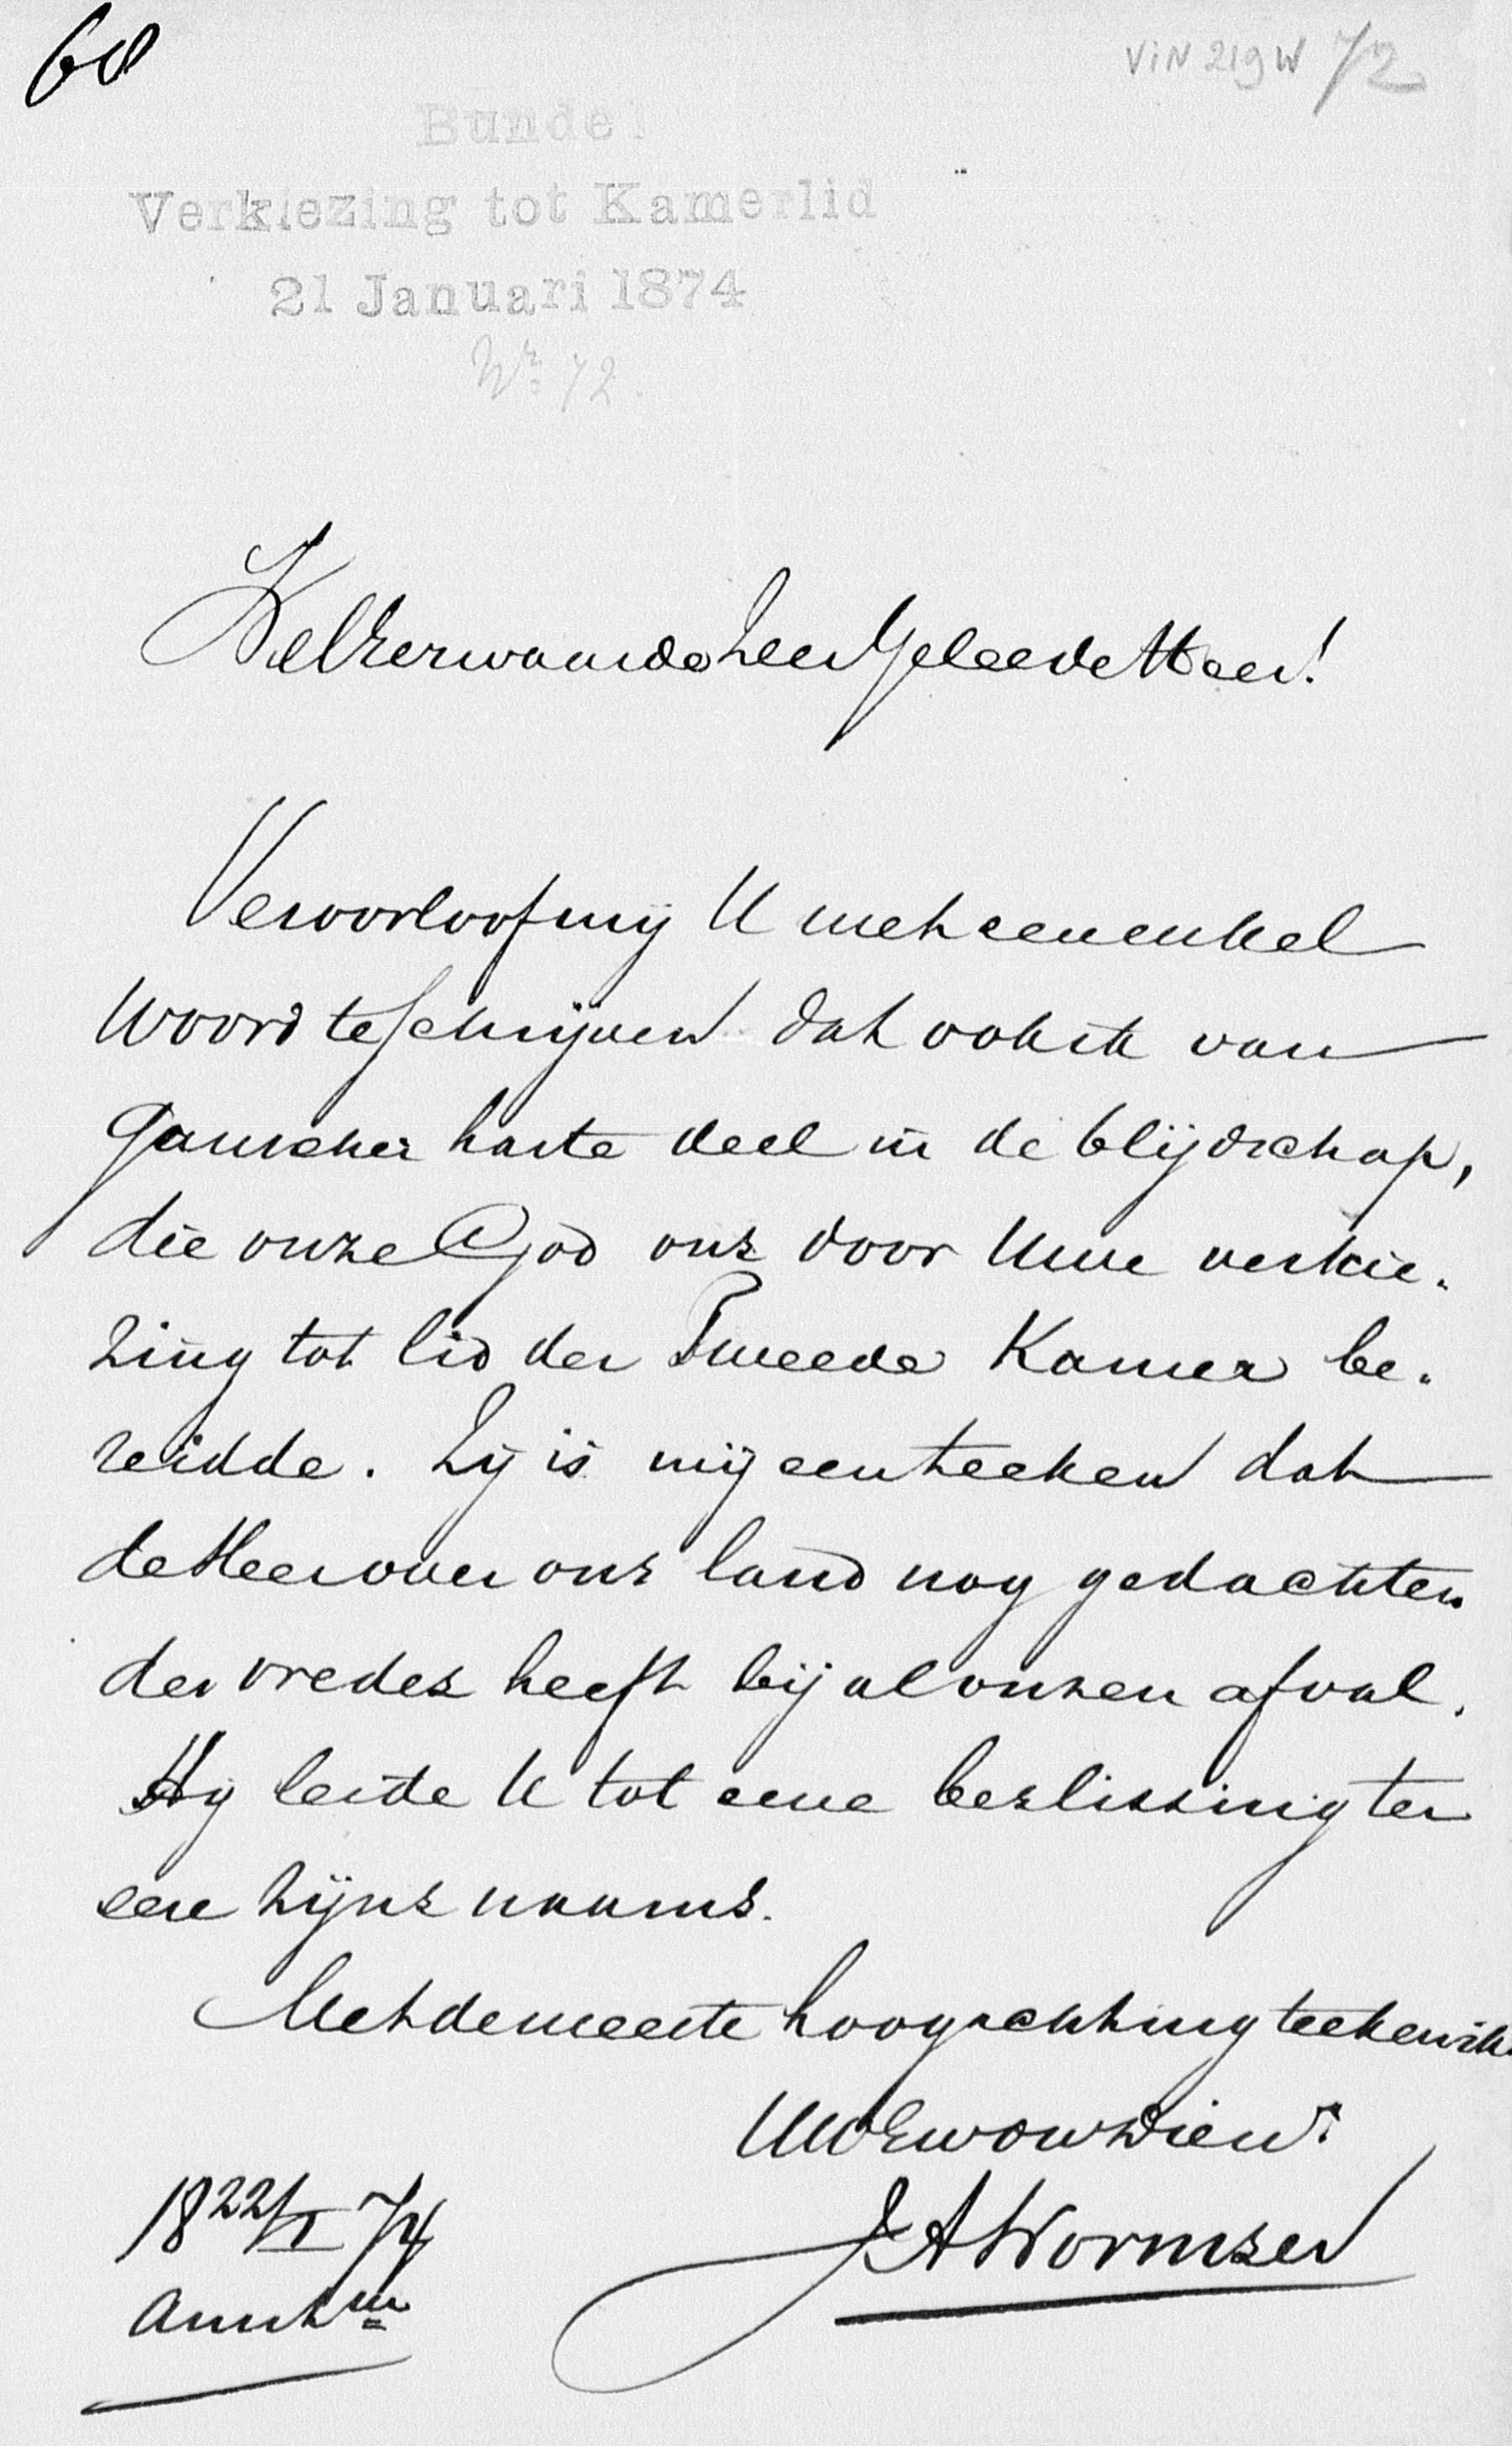 60
VIN 219 W 72
Bundel
Verkiezing tot Kamerlid
21 Januari 1874
Nr. 72.
WelEerwaarde ZeerGeleerde Heer!
Veroorloof mij U met een enkel
woord te schrijven dat ook ik van
ganscher harte deel in de blijdschap,
die onze God ons door Uwe verkie-
zing tot lid der Tweede Kamer be-
reidde. Zij is mij een teeken dat
de Heer over ons land nog gedachten
des vredes heeft bij al onzen afval.
Hij leide U tot eene beslissing ter
eere Zijns naams.
Met de meeste hoogachting teeken ik
UWEw dw Dien.r
JA Wormser
18 22/I 74